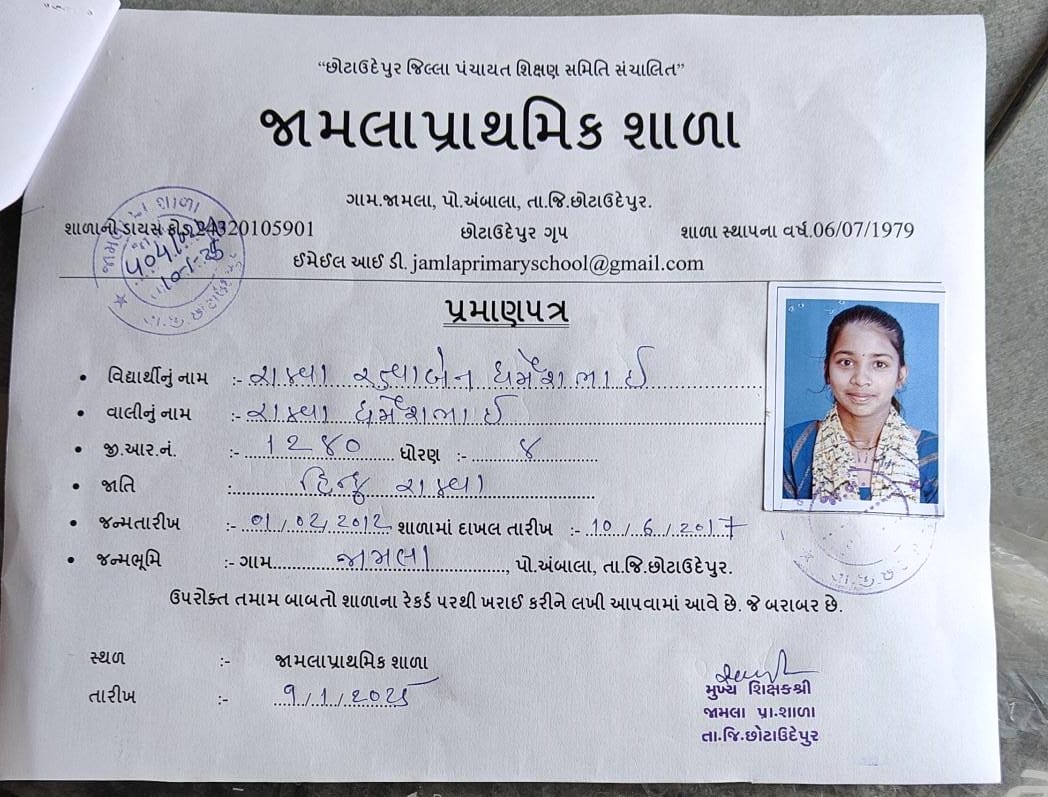 “છોટાઉદેપુર જિલ્લા પંચાયત શિક્ષણ સમિતિ સંચાલિત”
જામલાપ્રાથમિક શાળા
ગામ.જામલા, પો.અંબાલા, તા.જિ.છોટાઉદેપુર.
શાળાનો ડાયસ કોડ.24320105901 છોટાઉદેપુર ગૃપ શાળા સ્થાપના વર્ષ.06/07/1979
ઈમેઈલ આઈ ડી. jamlaprimaryschool@gmail.com
પ્રમાણપત્ર
• વિદ્યાર્થીનું નામ :- રાઠવા ધર્મેશભાઈ
• વાલીનું નામ :- રાઠવા ધર્મેશભાઈ
• જી.આર.નં. :- 1280 ધોરણ :- ૪
• જાતિ :- હિન્દુ રાઠવા
• જન્મતારીખ :- 01/02/2012 શાળામાં દાખલ તારીખ :- 10/6/2017
• જન્મભૂમિ :- ગામ. જામલા, પો.અંબાલા, તા.જિ.છોટાઉદેપુર.
ઉપરોક્ત તમામ બાબતો શાળાના રેકર્ડ પરથી ખરાઈ કરીને લખી આપવામાં આવે છે. જે બરાબર છે.
સ્થળ :- જામલાપ્રાથમિક શાળા
તારીખ :- 9/1/2025
મુખ્ય શિક્ષકશ્રી
જામલા પ્રા.શાળા
તા.જિ.છોટાઉદેપુર